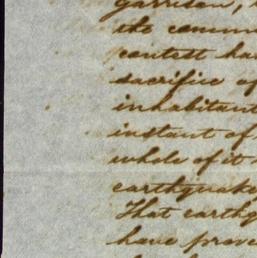 garrison,
the comm
contest ha
sacrifice of
inhabitant
instant of
whole of it
earthquake
That earthq
have prove